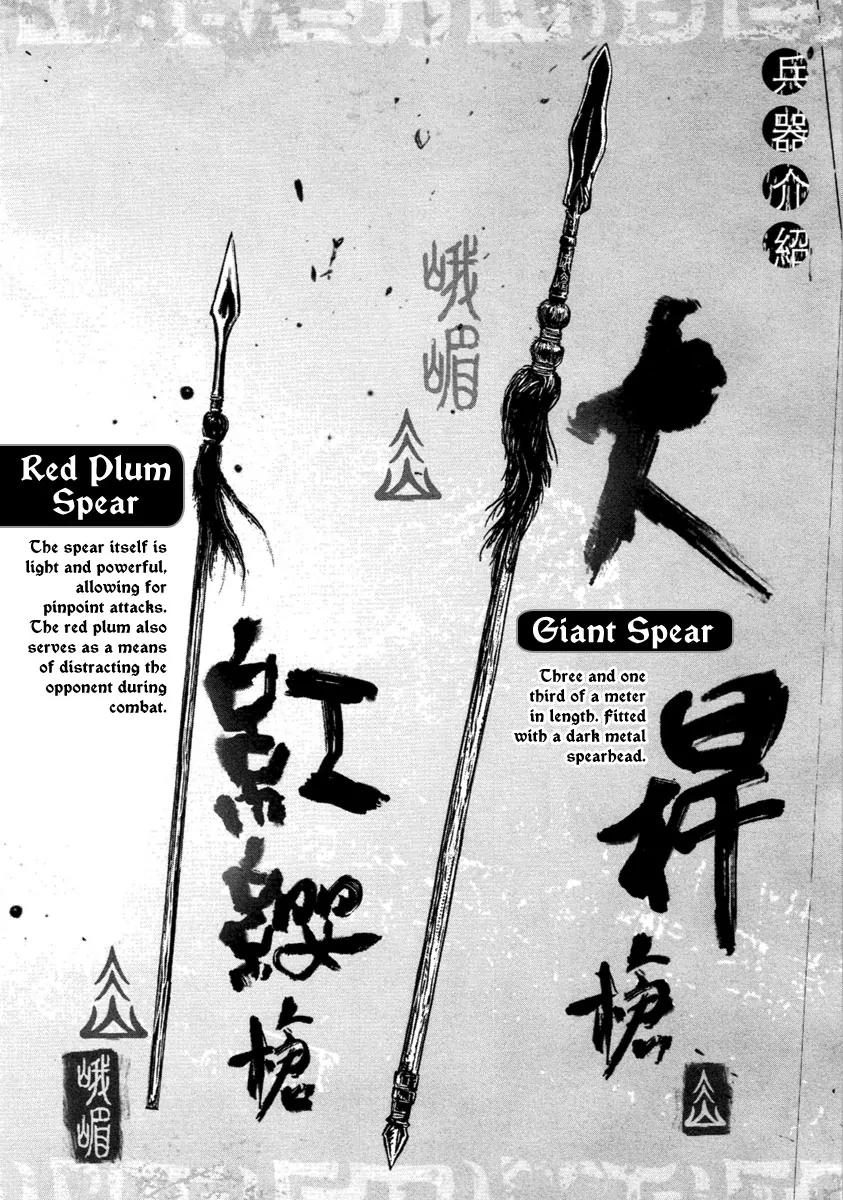 兵器介紹
大桿槍
峨嵋
Giant Spear
Three and one
third of a meter
in length. Fitted
with a dark metal
spearhead.
紅纓槍
Red Plum
Spear
The spear itself is
light and powerful,
allowing for
pinpoint attacks.
The red plum also
serves as a means
of distracting the
opponent during
combat.
峨嵋